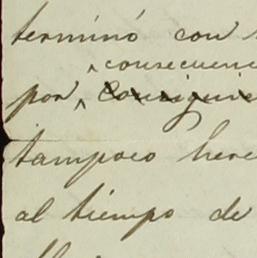 terminó con
consecuenc
por
tampoco here
al tiempo de